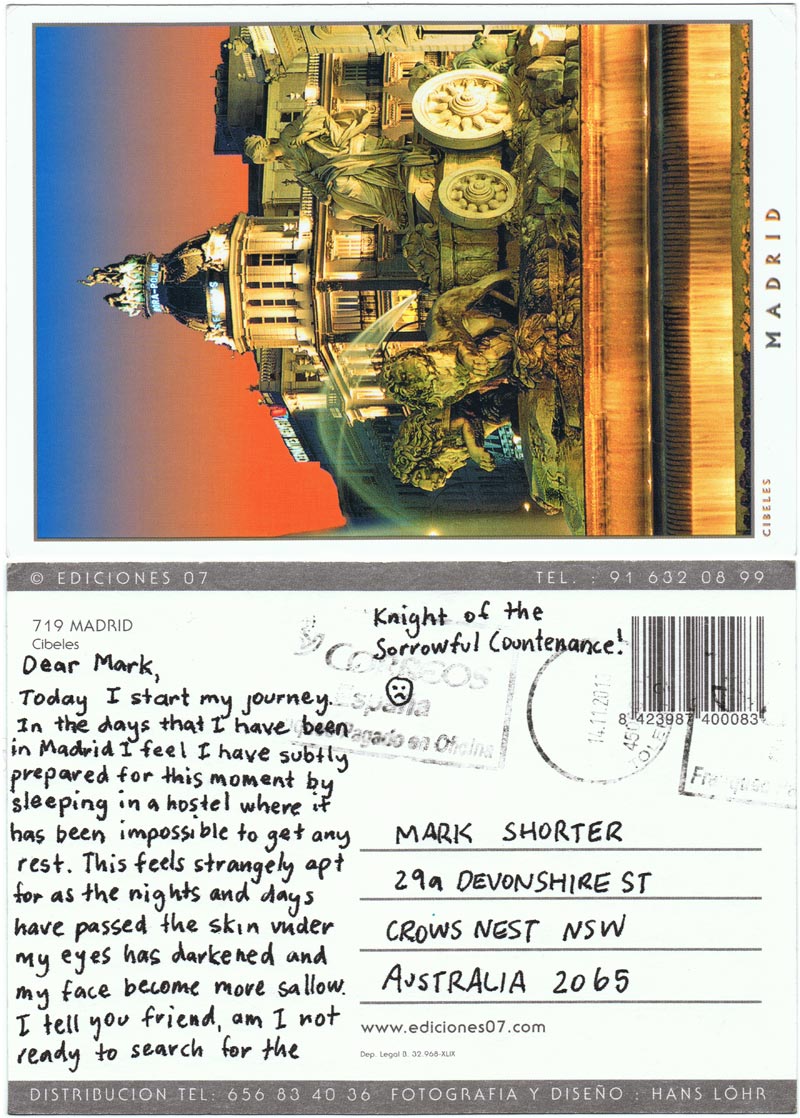 MADRID
CIBELES
© EDICIONES 07
TEL. : 91 632 08 99
719 MADRID
Cibeles
Dear Mark,
Today I start my journey.
In the days that I have been
in Madrid I feel I have subtly
prepared for this moment by
sleeping in a hostel where it
has been impossible to get any
rest. This feels strangely apt
for as the nights and days
have passed the skin under
my eyes has darkened and
my face become more sallow.
I tell you friend, am I not
ready to search for the
Knight of the
Sorrowful Countenance!
Correos
España
Pagado en Oficina
14.11.2013
Franqueo
8 423987 400083
MARK SHORTER
29a DEVONSHIRE ST
CROWS NEST NSW
AUSTRALIA 2065
www.ediciones07.com
Dep. Legal B. 32.968-XLIX
DISTRIBUCION TEL: 656 83 40 36 FOTOGRAFIA Y DISEÑO : HANS LÖHR